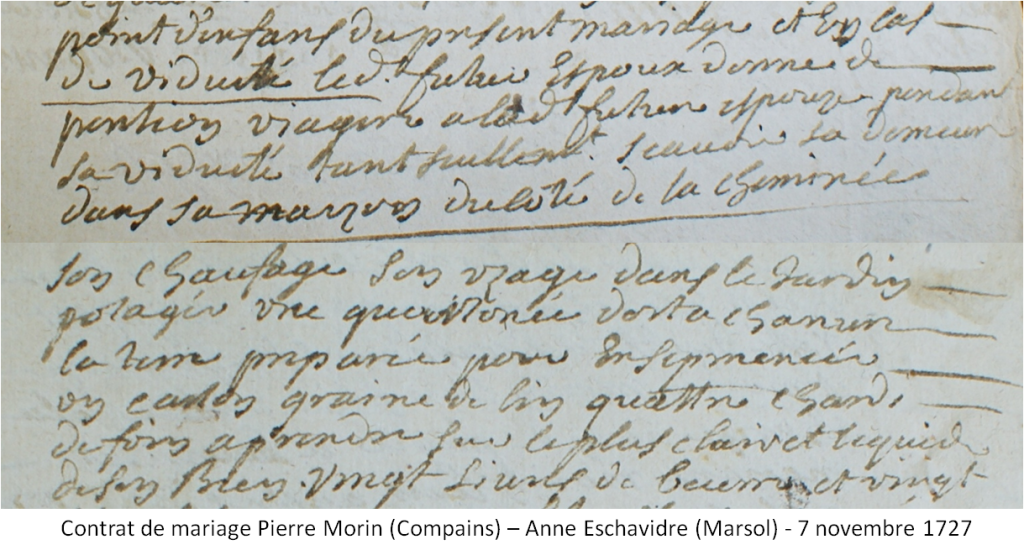 point d'enfans du present mariage et En cas
de viduité led.t futur Espoux donne de
pention viagere a lad.t future espouze pendant
sa viduité tant seullem.t scavoir sa demeure
dans sa maizon du coté de la cheminée
son chaufage son uzage dans le Jardin
potager une quartonée dorta chanure
la terre preparée pour Ensemencée
un carton graine de lin quattre chards
de foin a prendre sur le plus clair et liquide
de son Bien vingt Livres de beurre et vingt
Contrat de mariage Pierre Morin (Compains) – Anne Eschavidre (Marsol) - 7 novembre 1727